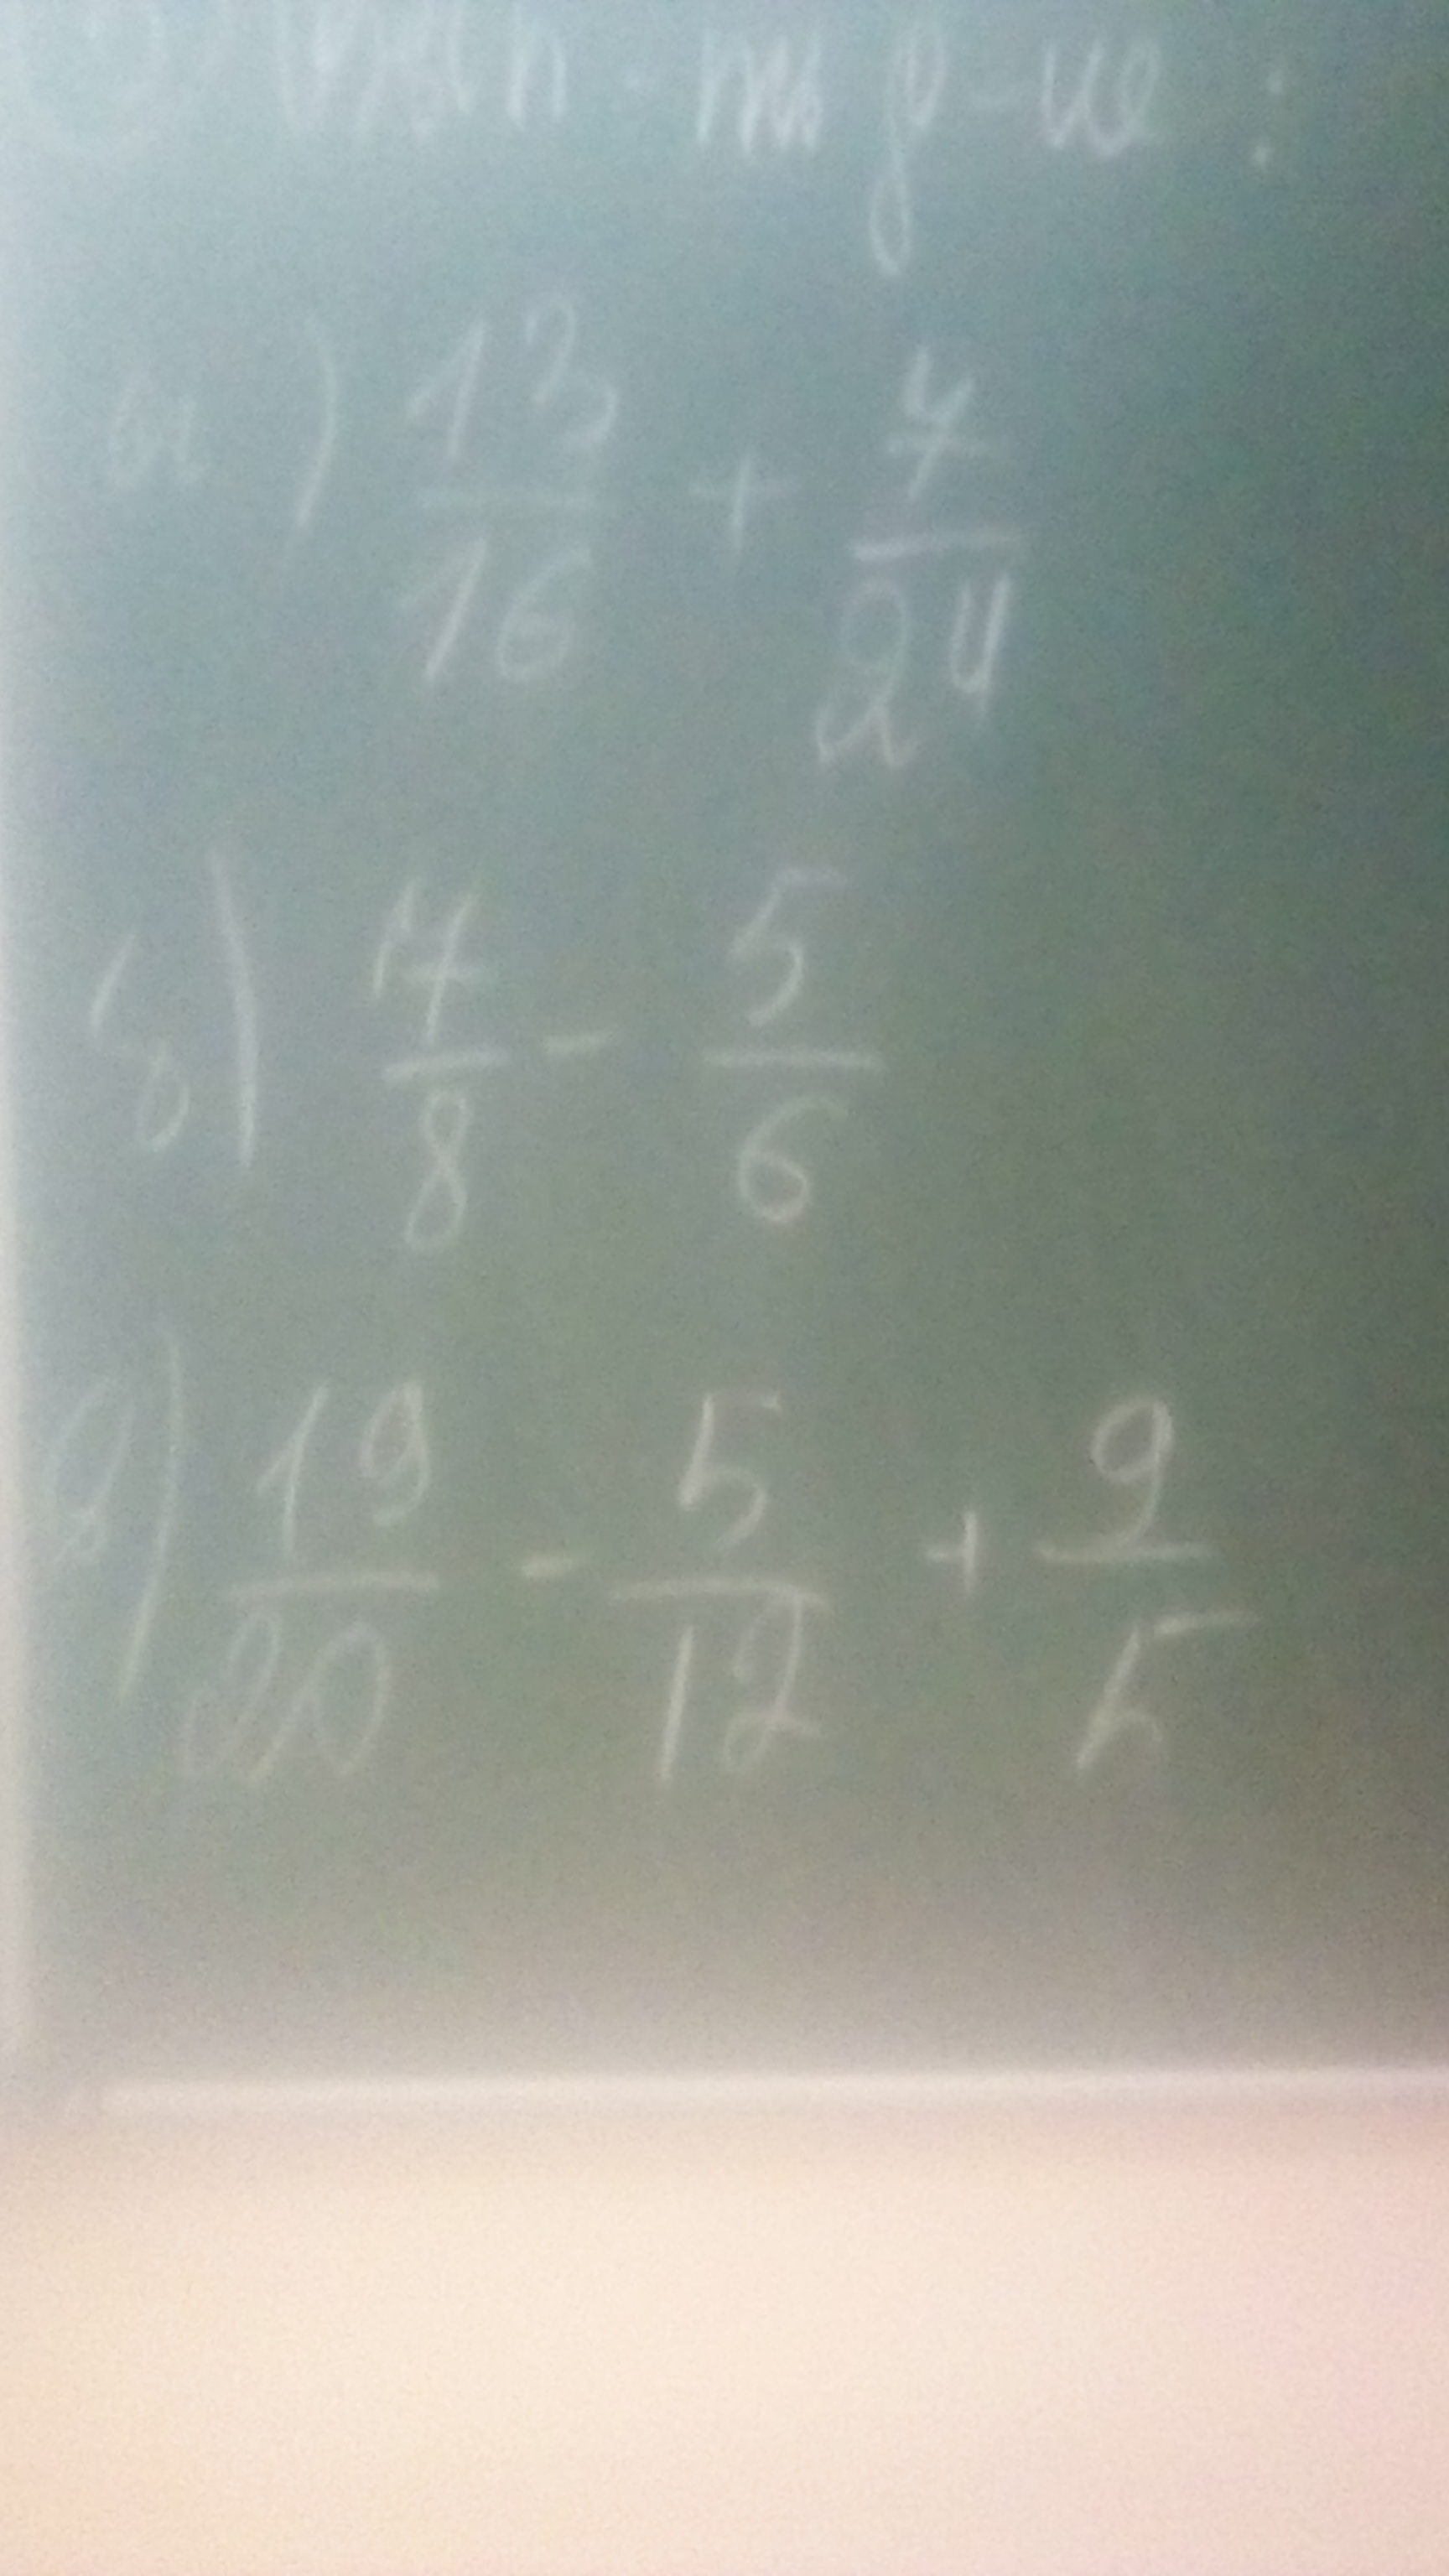 а) 13/16 + 7/24
б) 7/8 - 5/6
в) 19/20 - 5/12 + 9/5